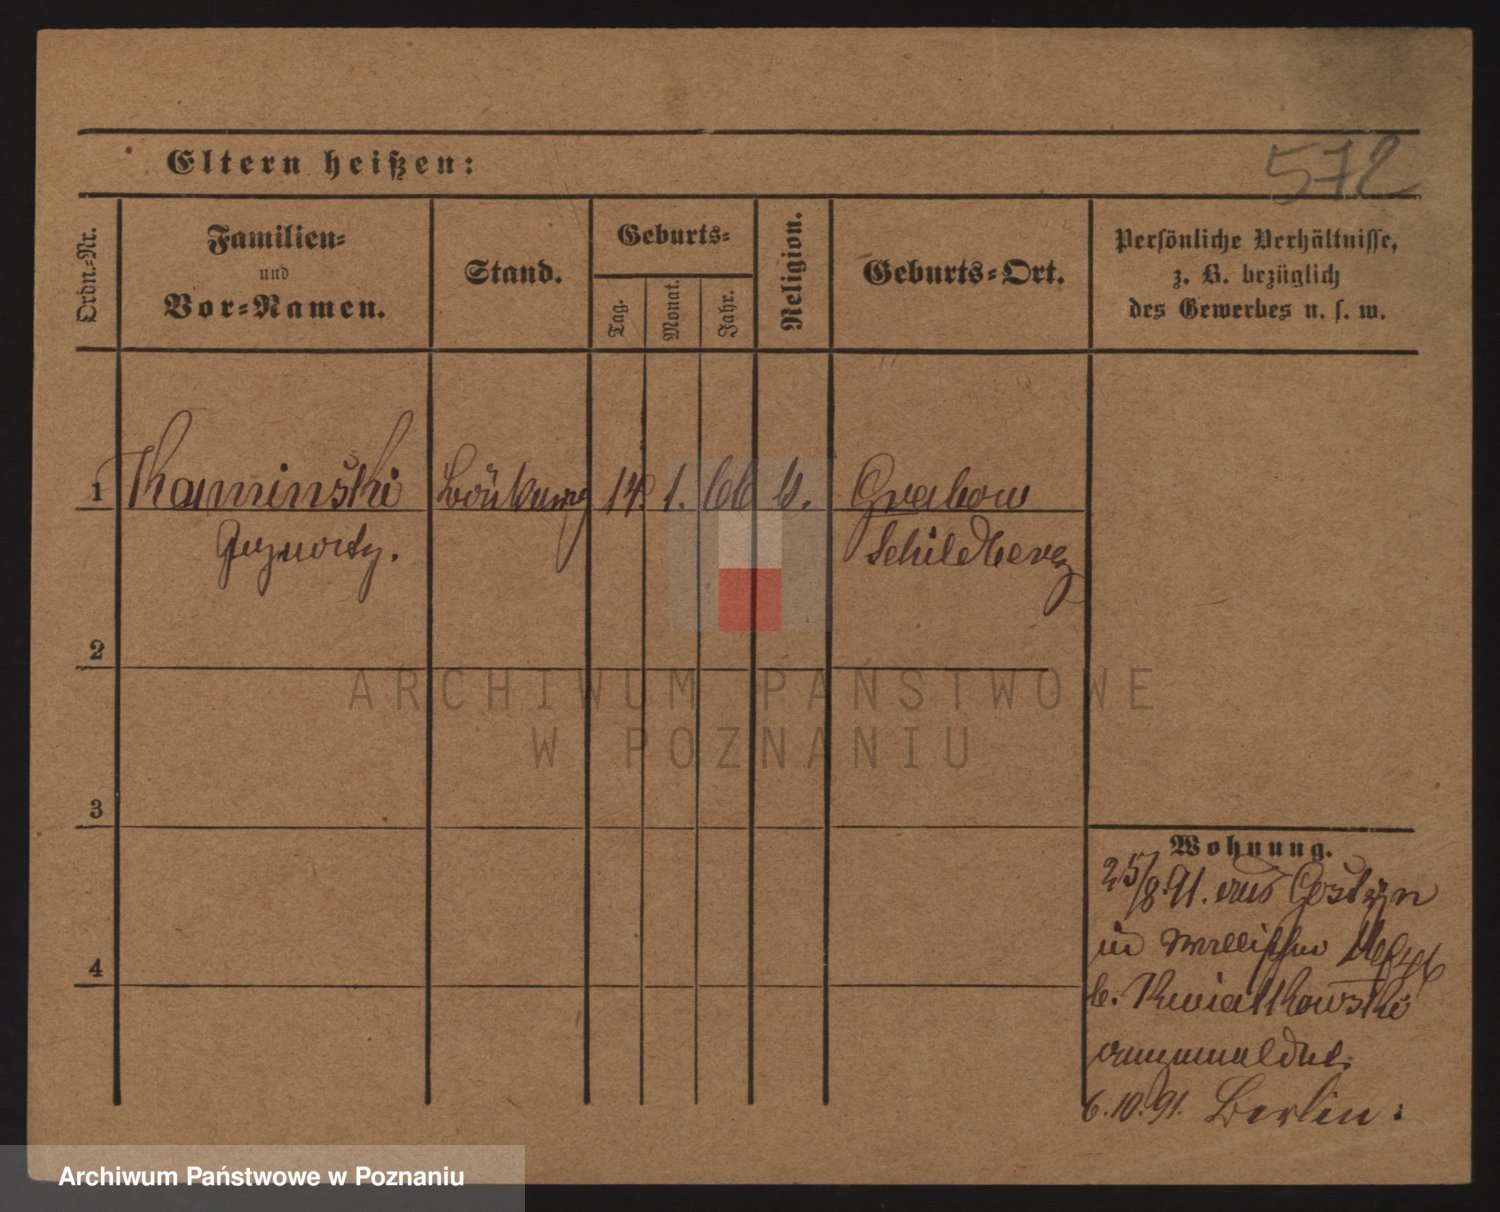 572
Eltern heißen:
Ordn.-Nr.
Familien-
und
Vor-Namen.
Stand.
Geburts-
Tag.
Monat.
Jahr.
Religion.
Geburts-Ort.
Persönliche Verhältnisse,
z. B. bezüglich
des Gewerbes u. s. w.
1 Kaminski 14. 1. 66 k. Grabow
Schildberg
2
3
4
Wohnung.
25/8.91. aus Gostyn
in
b. Kwiatkowski
angemeldet.
6.10.91. Berlin.
ARCHIWUM PAŃSTWOWE
W POZNANIU
Archiwum Państwowe w Poznaniu